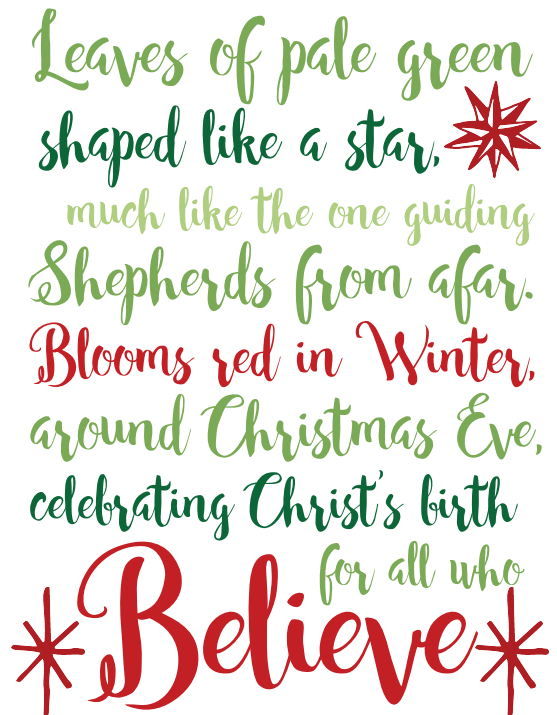 Leaves of pale green
shaped like a star,
much like the one guiding
Shepherds from afar.
Blooms red in Winter,
around Christmas Eve,
celebrating Christ's birth
for all who
Believe